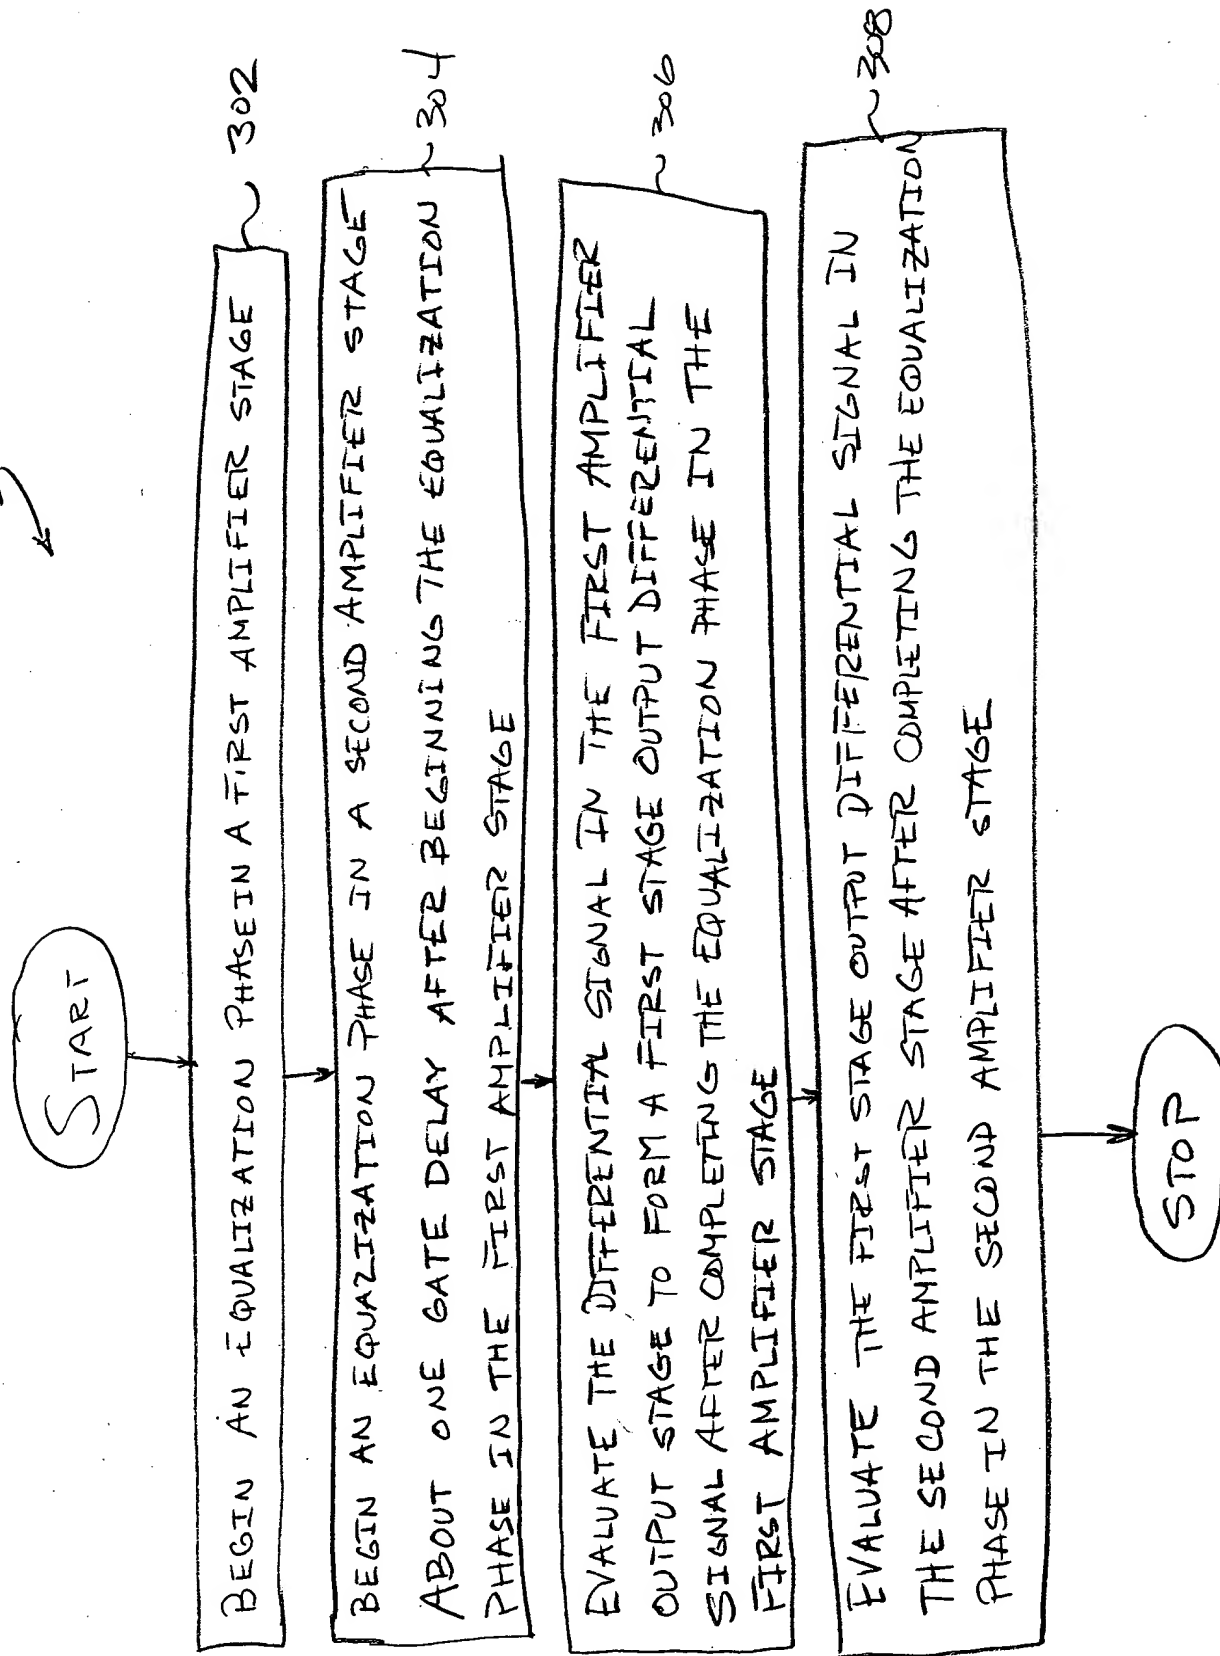 START
BEGIN AN EQUALIZATION PHASE IN A FIRST AMPLIFIER STAGE
302
BEGIN AN EQUALIZATION PHASE IN A SECOND AMPLIFIER STAGE
ABOUT ONE GATE DELAY AFTER BEGINNING THE EQUALIZATION
PHASE IN THE FIRST AMPLIFIER STAGE
304
EVALUATE THE DIFFERENTIAL SIGNAL IN THE FIRST AMPLIFIER
OUTPUT STAGE TO FORM A FIRST STAGE OUTPUT DIFFERENTIAL
SIGNAL AFTER COMPLETING THE EQUALIZATION PHASE IN THE
FIRST AMPLIFIER STAGE
306
EVALUATE THE FIRST STAGE OUTPUT DIFFERENTIAL SIGNAL IN
THE SECOND AMPLIFIER STAGE AFTER COMPLETING THE EQUALIZATION
PHASE IN THE SECOND AMPLIFIER STAGE
308
STOP